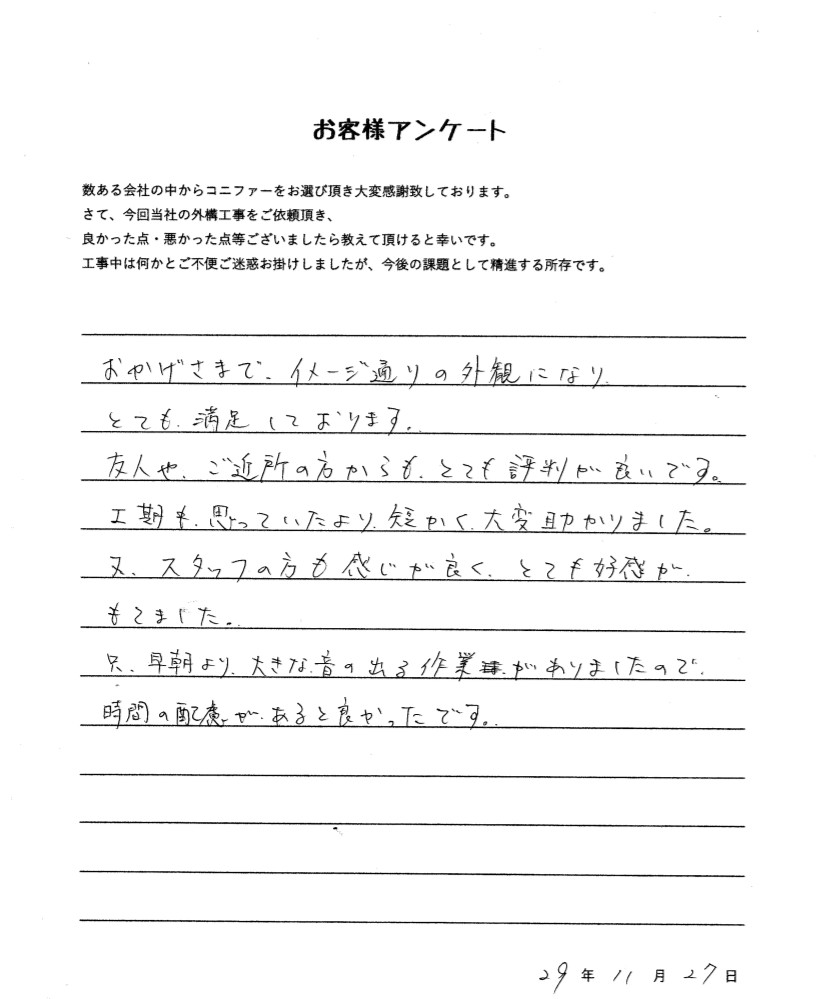 お客様アンケート
数ある会社の中からコニファーをお選び頂き大変感謝致しております。
さて、今回当社の外構工事をご依頼頂き、
良かった点・悪かった点等ございましたら教えて頂けると幸いです。
工事中は何かとご不便ご迷惑お掛けしましたが、今後の課題として精進する所存です。
おかげさまで、イメージ通りの外観になり、
とても、満足しております。
友人や、ご近所の方からも、とても評判が良いです。
工期も、思っていたより、短かく、大変助かりました。
又、スタッフの方も感じが良く、とても好感が、
もてました。
只、早朝より、大きな、音の出る作業がありましたので、
時間の配慮が、あると良かったです。
29年11月27日